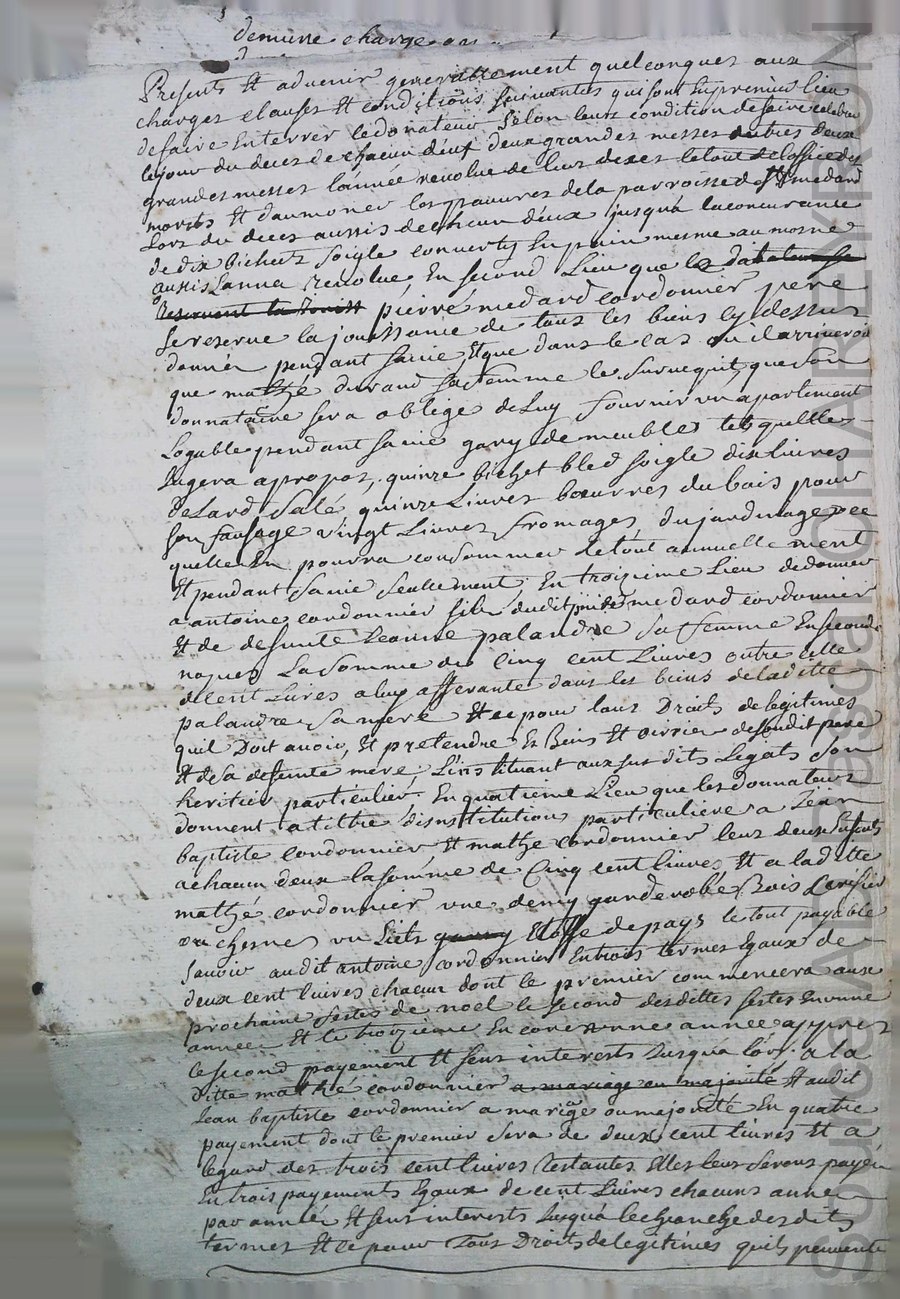 demeure chargé
Presents Et advenir generallement quelconques aux
charges clauses Et conditions suivantes qui sont En premier lieu
de faire Enterrer le donateur Selon leurs condition de faire celebrer
le jour du deces de chacun deux deux grandes messes deux
grandes messes l'année revolue de leur deces le tout de loffice des
morts Et d'aumoner les pauvres de la parroisse de St medard
Lors du deces aussis de chacun deux jusqua la concurance
de dix bichets soigle convertis En pain mesme aumosne
aussis L'annee revolue, En second Lieu que le donateur se
reservent la jouiss pierre medard cordonnier pere
se reserve la jouissance de tous les biens cy dessus
donnés pendant sa vie, Et que dans le cas ou il arriveroit
que mathé durand sa femme le survequit, que son
donnataire sera obligé de Luy fournir un apartement
Logable pendant sa vie gary de meubles tels quelle
Jugera apropos, quinze bichet bled soigle dix livres
de Lard Salé quinze Livres bœurres du bois pour
son fauage vingt Livres fromages, du jardinage ce
quelle En pourra consommer le tout annuellement
Et pendant sa vie seullement, En troizieme Lieu de donner
a antoine cordonnier fils dudit pierre medard cordonnier
Et de defunte Leonne palandre sa femme En seconde
noques La somme de Cinq cent Livres outre celle
de cent Livres a luy afferante dans les biens de laditte
palandre sa mere Et ce pour tous Droits de legitimes
quil Doit avoir, Et pretendre Es Biens Et de son dit pere
Et de sa defunte mere, L'instituant aux sus dits Legats son
heritier particulier. En quatrieme Lieu que les donnateurs
donnent a tittre d'institution particuliere a Jean
baptiste cordonnier Et mathe cordonnier leur deux Enfants
a chacun deux la somme de Cinq cent livres Et a laditte
mathé cordonnier une demy garderobe Bois Cerisier
ou chesne, un Liets garny Etoffe de pays le tout payable
sauoir audit antoine cordonnier En trois termes Egaux de
deux cent livres chacun dont le premier commencera aux
prochaine festes de noel le second desdittes festes En une
année Et le troizieme En core En une annee appres
le second payement Et sens interests Jusqua lors, a la
ditte mathé cordonnier a mariage ou majorité Et audit
Jean baptiste cordonnier a mariage ou majorité En quatre
payement dont le premier sera de deux cent livres Et a
l'egard des trois cent livres restantes Elles leur serons payés
En trois payements Egaux de cent Livres chacuns année
par année Et sens interests Jusqua lechanche desdits
termes Et ce pour tous Droits de legitimes quils peuvent